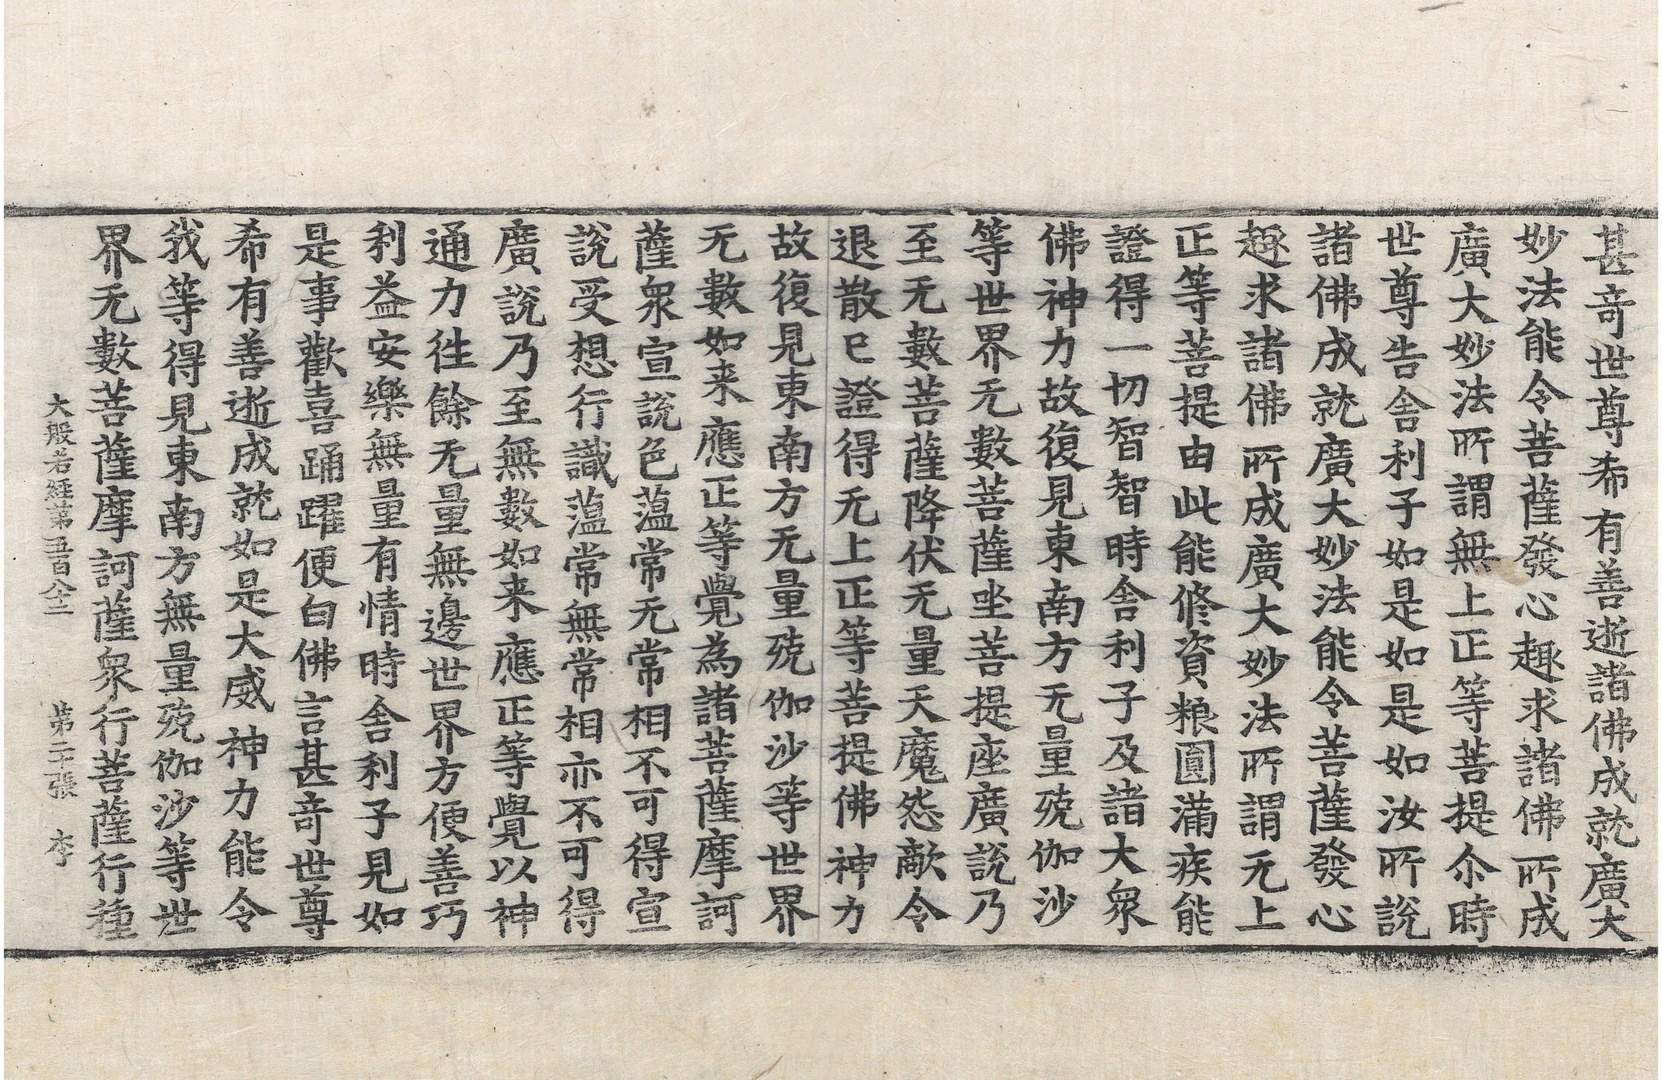 甚竒世尊希有善逝諸佛成就廣大
妙法能令菩薩發心趣求諸佛所成
廣大妙法所謂無上正等菩提尒時
世尊告舍利子如是如是如汝所說
諸佛成就廣大妙法能令菩薩發心
趣求諸佛所成廣大妙法所謂无上
正等菩提由此能修資粮圓滿疾能
證得一切智智時舍利子及諸大衆
佛神力故復見東南方无量殑伽沙
等世界无數菩薩坐菩提座廣說乃
至无數菩薩降伏无量天魔怨敵令
退散已證得无上正等菩提佛神力
故復見東南方无量殑伽沙等世界
无數如来應正等覺為諸菩薩摩訶
薩衆宣說色蘊常无常相不可得宣
說受想行識蘊常無常相亦不可得
廣說乃至無數如来應正等覺以神
通力往餘无量無邊世界方便善巧
利益安樂無量有情時舍利子見如
是事歡喜踊躍便白佛言甚竒世尊
希有善逝成就如是大威神力能令
我等得見東南方無量殑伽沙等世
界无數菩薩摩訶薩衆行菩薩行種
大般若經第五百八十二 第二十張 李